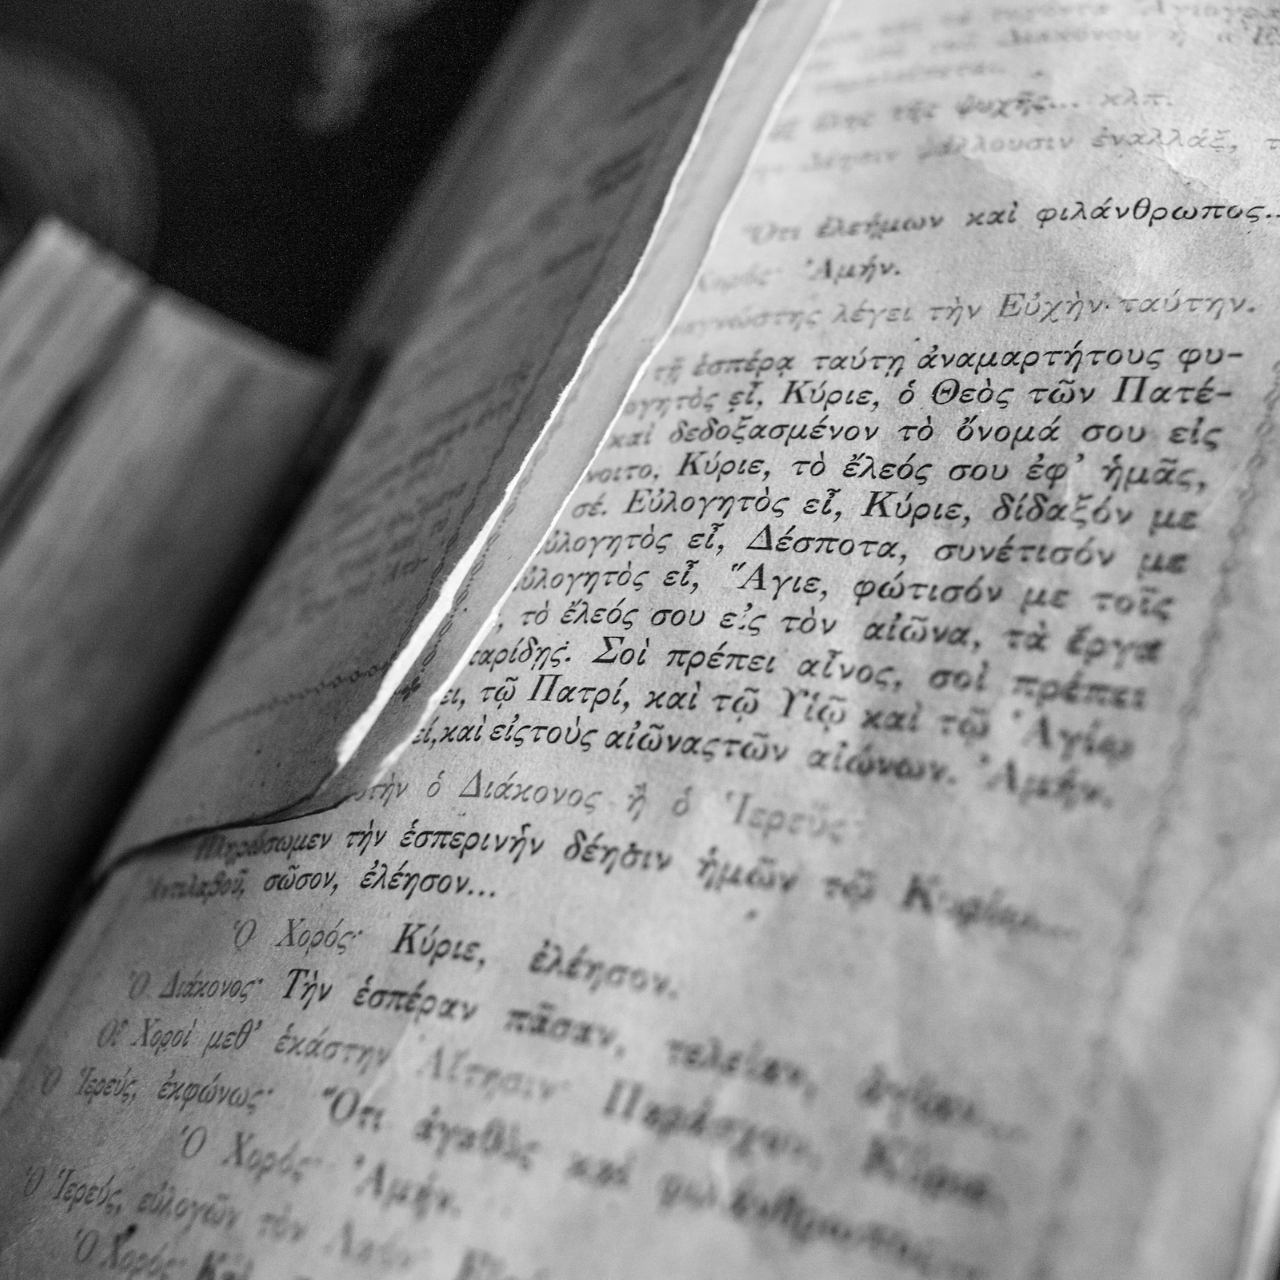 τῆς ψυχῆς... κλπ.
ψάλλουσιν ἐναλλάξ,
Ὅτι ἐλεήμων καὶ φιλάνθρωπος..
Χορός· Ἀμήν.
λέγει τὴν Εὐχὴν· ταύτην.
τῇ ἑσπέρᾳ ταύτῃ ἀναμαρτήτους φυ-
ογητὸς εἶ, Κύριε, ὁ Θεὸς τῶν Πατέ-
καὶ δεδοξασμένον τὸ ὄνομά σου εἰς
νοιτο, Κύριε, τὸ ἔλεός σου ἐφ’ ἡμᾶς,
σέ. Εὐλογητὸς εἶ, Κύριε, δίδαξόν με
ὐλογητὸς εἶ, Δέσποτα, συνέτισόν με
ὐλογητὸς εἶ, Ἅγιε, φώτισόν με τοῖς
, τὸ ἔλεός σου εἰς τὸν αἰῶνα, τὰ ἔργα
αρίδῃς. Σοὶ πρέπει αἶνος, σοὶ πρέπει
ει, τῷ Πατρί, καὶ τῷ Υἱῷ καὶ τῷ Ἁγίῳ
εί, καὶ εἰς τοὺς αἰῶνας τῶν αἰώνων. Ἀμήν.
ὁ Διάκονος ἢ ὁ Ἱερεύς·
Πληρώσωμεν τὴν ἑσπερινὴν δέησιν ἡμῶν τῷ Κυρίῳ...
Ἀντιλαβοῦ, σῶσον, ἐλέησον...
Ὁ Χορός· Κύριε, ἐλέησον.
Ὁ Διάκονος· Τὴν ἑσπέραν πᾶσαν, τελείαν, ἁγίαν...
Οἱ Χοροὶ μεθ’ ἑκάστην Αἴτησιν· Παράσχου, Κύριε.
Ὁ Ἱερεύς, ἐκφώνως· Ὅτι ἀγαθὸς καὶ φιλάνθρωπος
Ὁ Χορός· Ἀμήν.
Ὁ Ἱερεύς, εὐλογῶν τὸν Λαόν·
Ὁ Χορός· Καὶ